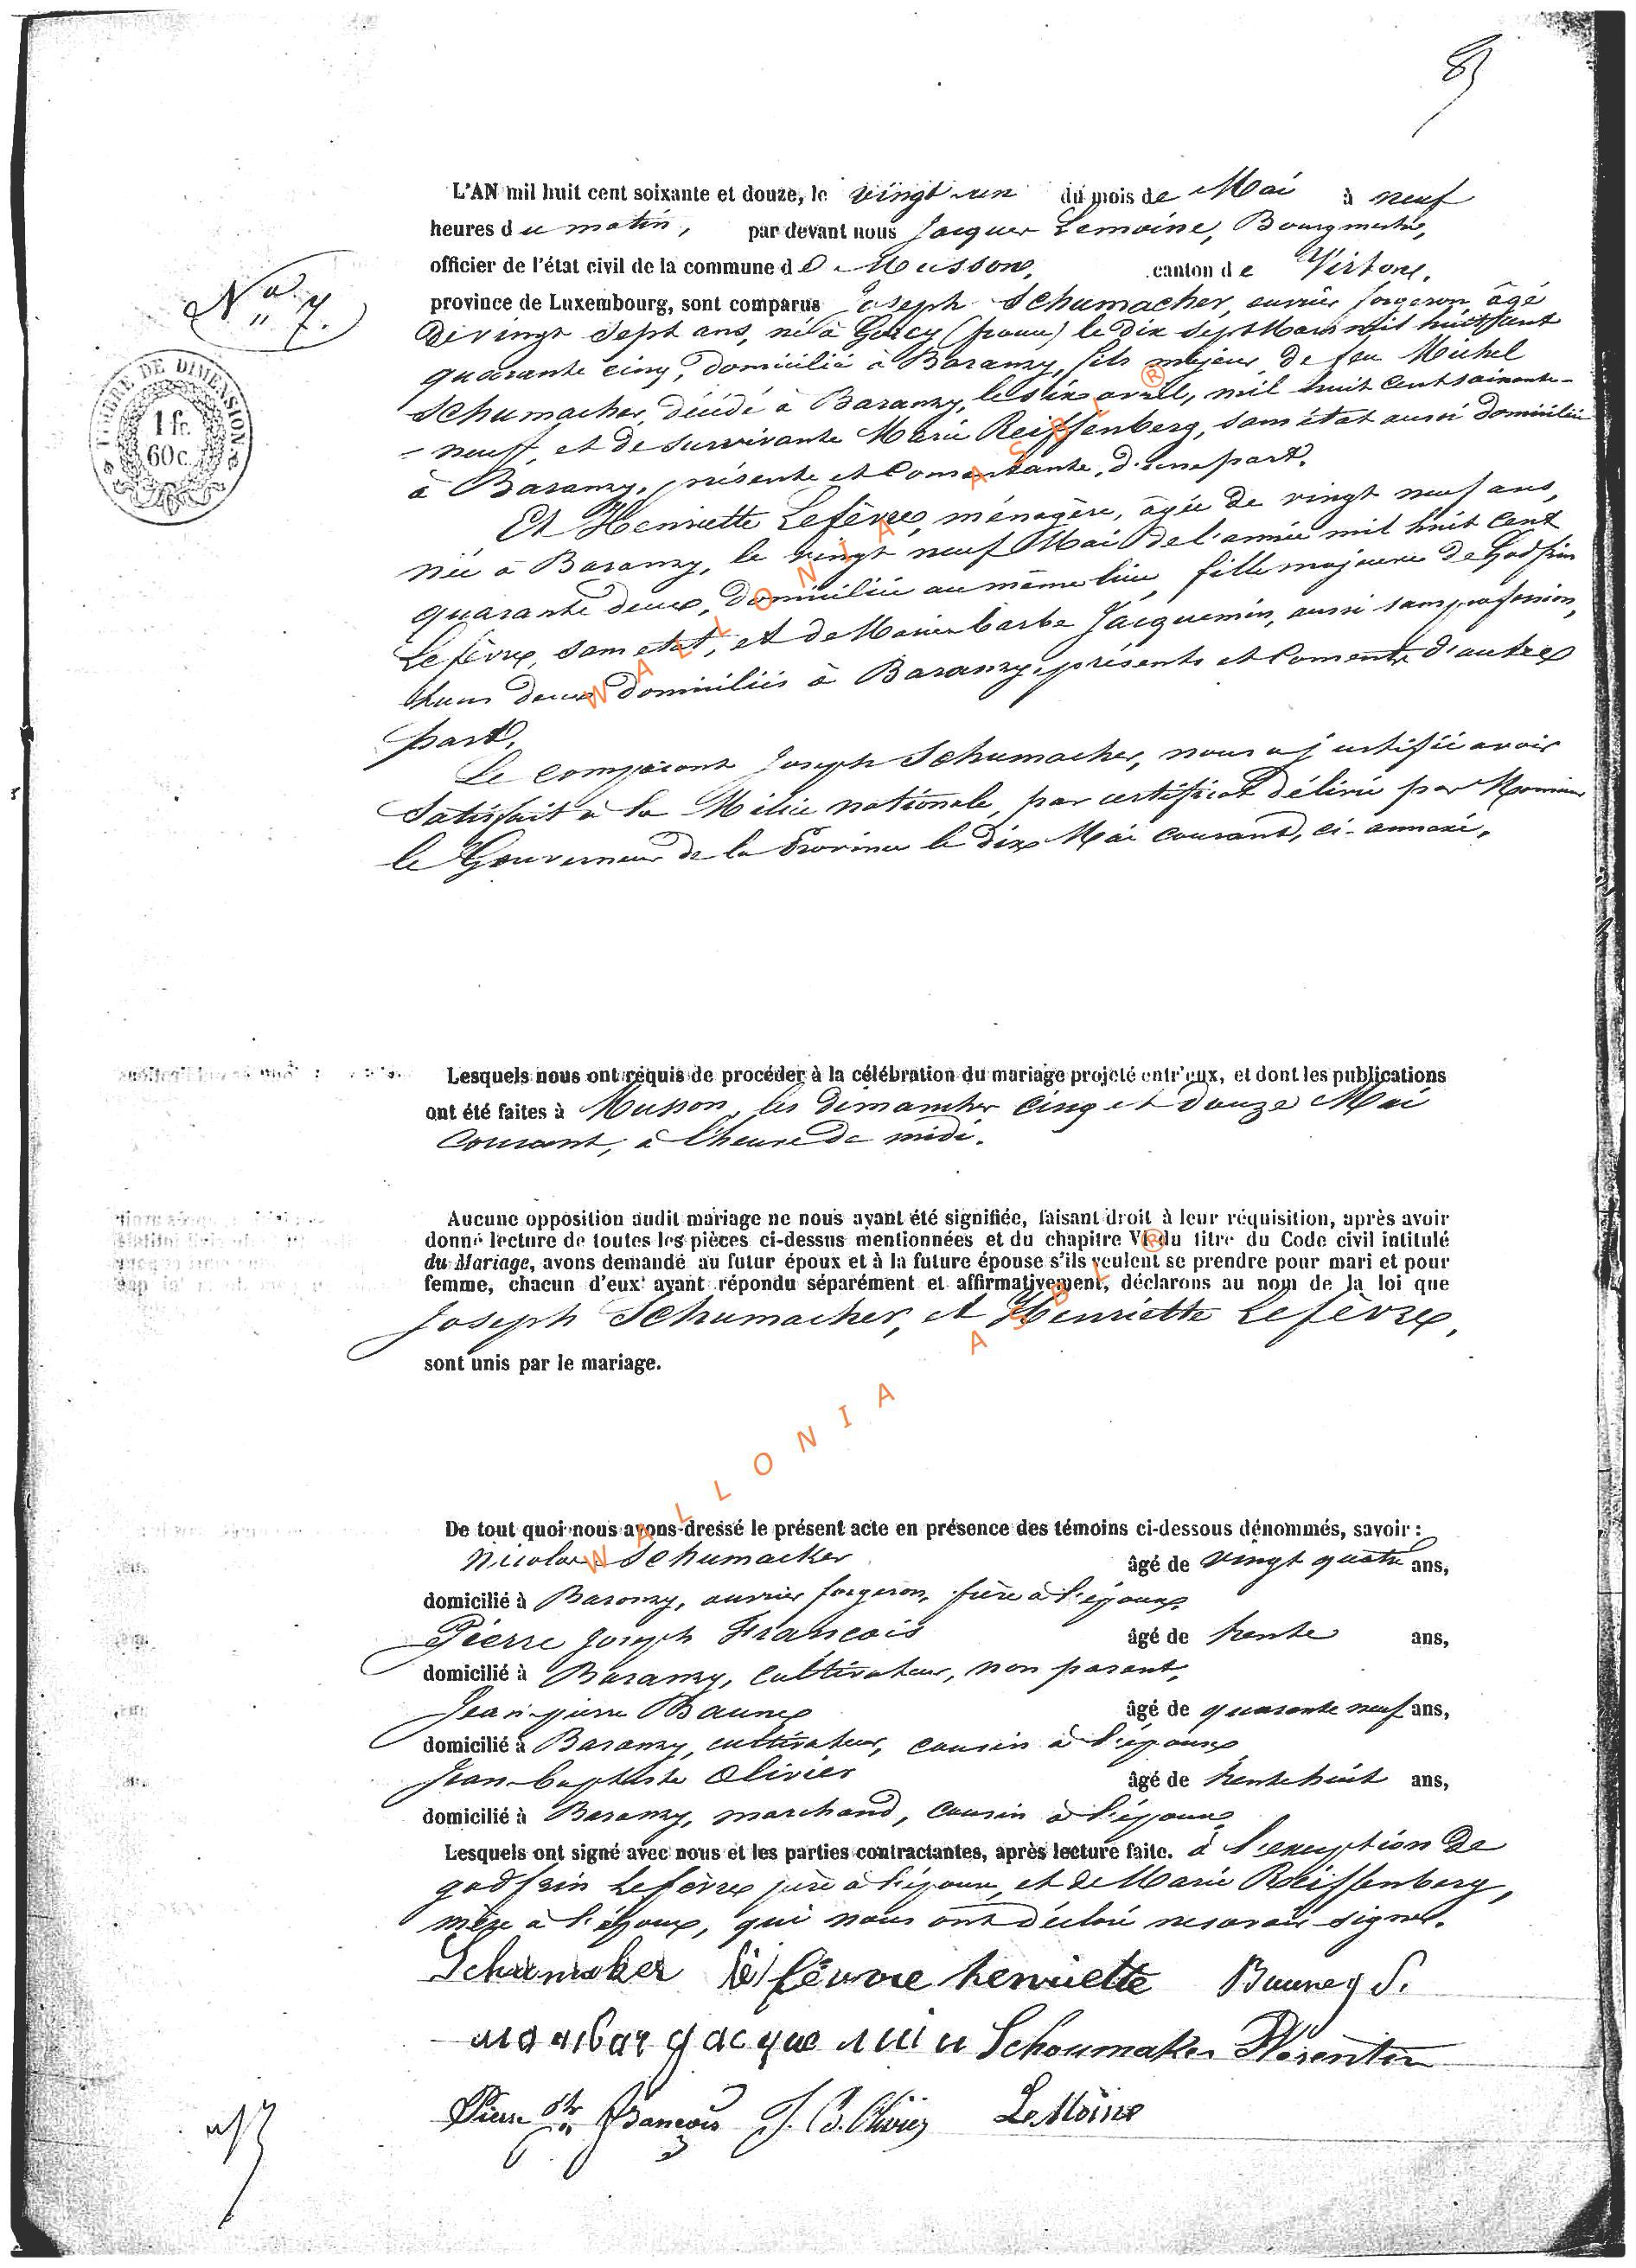 83
L'AN mil huit cent soixante et douze, le vingt un du mois de Mai à neuf
heures du matin, par devant nous Jacques Lemoine, Bourgmestre,
officier de l'état civil de la commune de Musson, canton de Virton,
N° 7.
province de Luxembourg, sont comparus Joseph Schumacher, ouvrier forgeron âgé
de vingt sept ans, né à Gorcy (france) le dix sept Mars mil huit cent
quarante cinq, domicilié à Baranzy, fils majeur de feu Michel
Schumacher, décédé à Baranzy, le six avril, mil huit cent soixante-
- neuf, et de survivante Marie Reiffenberg, sans état aussi domiciliée
à Baranzy, présente et Consentante, d'une part.
Et Henriette Lefèvre, ménagère, âgée de vingt neuf ans,
née à Baranzy, le vingt neuf Mai de l'année mil huit cent
quarante deux, domiciliée au même lieu, fille majeure de Godfrin
Lefèvre, sans etat, et de Marie barbe Jacquemin, aussi sans profession,
tous deux domiciliés à Baranzy, présents et Consents d'autre
part.
Le comparant Joseph Schumacher, nous a justifié avoir
Satisfait à la Milice nationale, par certificat délivré par Monsieur
le Gouverneur de la Province le dix Mai courant, ci-annexé.
TIMBRE DE DIMENSION
1 fr.
60 c.
Lesquels nous ont requis de procéder à la célébration du mariage projeté entr'eux, et dont les publications
ont été faites à Musson, les dimanches cinq et douze Mai
Courant, à l'heure de midi.
Aucune opposition audit mariage ne nous ayant été signifiée, faisant droit à leur réquisition, après avoir
donné lecture de toutes les pièces ci-dessus mentionnées et du chapitre VI du titre du Code civil intitulé
du Mariage, avons demandé au futur époux et à la future épouse s'ils veulent se prendre pour mari et pour
femme, chacun d'eux ayant répondu séparément et affirmativement, déclarons au nom de la loi que
Joseph Schumacher, et Henriette Lefèvre,
sont unis par le mariage.
De tout quoi nous avons dressé le présent acte en présence des témoins ci-dessous dénommés, savoir :
Nicolas Schumacker âgé de vingt quatre ans,
domicilié à Baranzy, ouvrier forgeron, frère à l'époux,
Pierre Joseph François âgé de trente ans,
domicilié à Baranzy, Cultivateur, non parent,
Jean-pierre Baune âgé de quarante neuf ans,
domicilié à Baranzy, cultivateur, cousin à l'épouse
Jean-baptiste Olivier âgé de trente huit ans,
domicilié à Baranzy, marchand, Cousin à l'épouse
Lesquels ont signé avec nous et les parties contractantes, après lecture faite. à l'exception de
godfrin Lefèvre père à l'épouse, et de Marie Reiffenberg,
mère à l'époux, qui nous ont déclaré ne savoir signer.
Schumaker lefêuvre henriette J.
Schoumaker Florentin
Pierre Jph François J. B. Olivier LeMoine
WALLONIA ASBL ®
WALLONIA ASBL ®